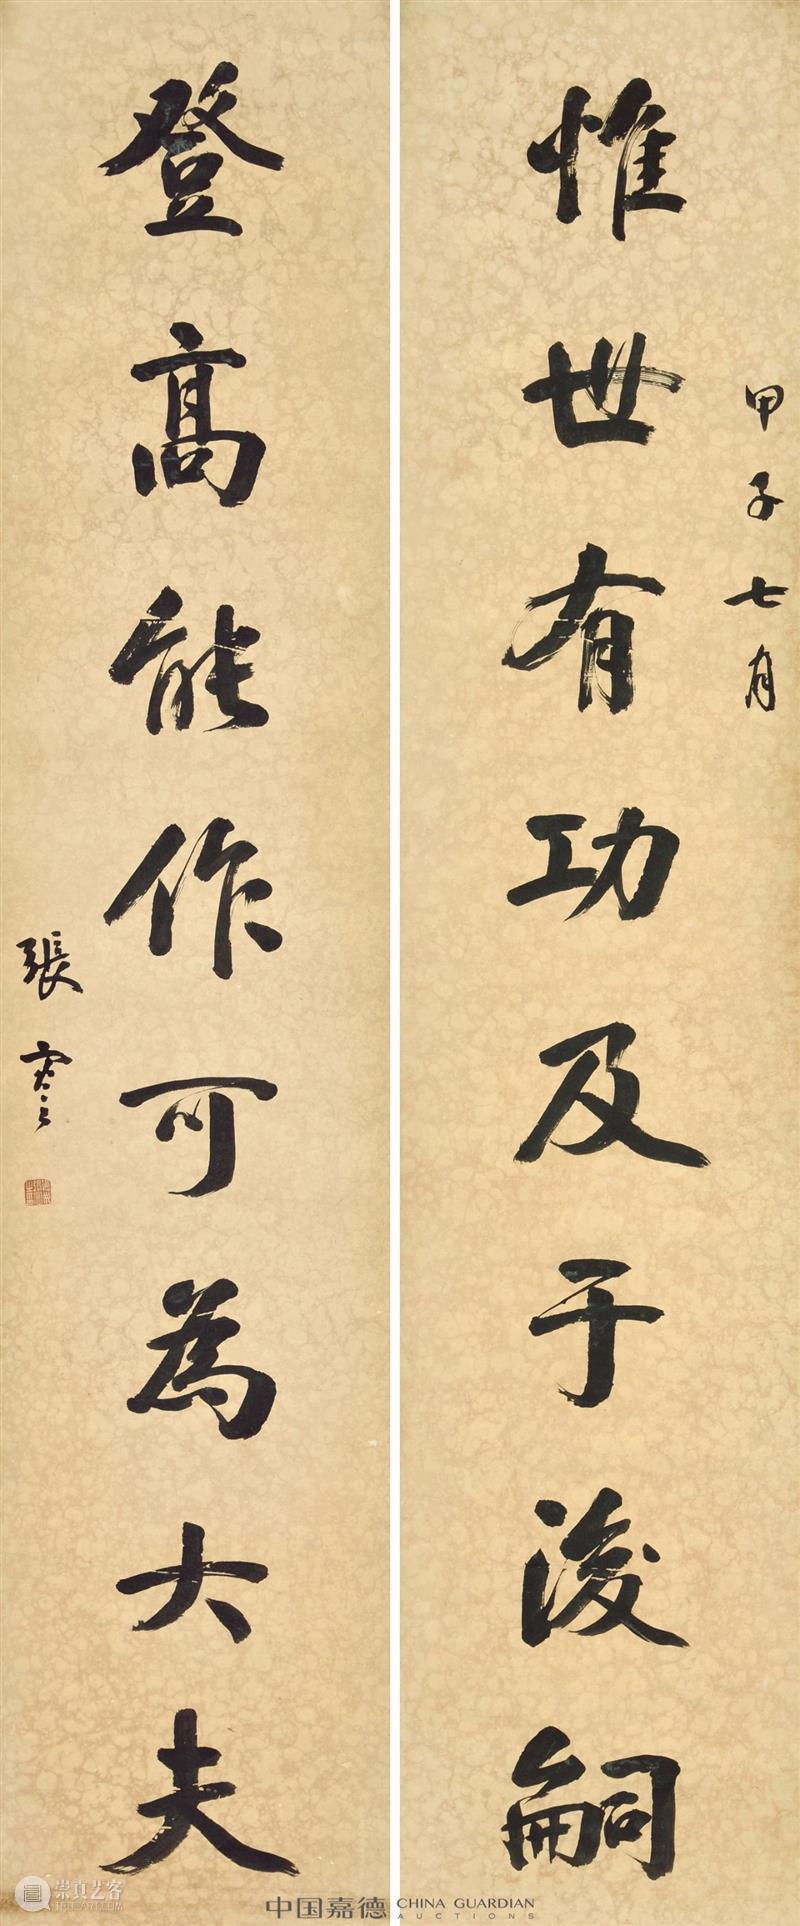 甲子七月
惟世有功及于後嗣
登高能作可為大夫
張謇
崇真艺客
中国嘉德
CHINA GUARDIAN
AUCTIONS